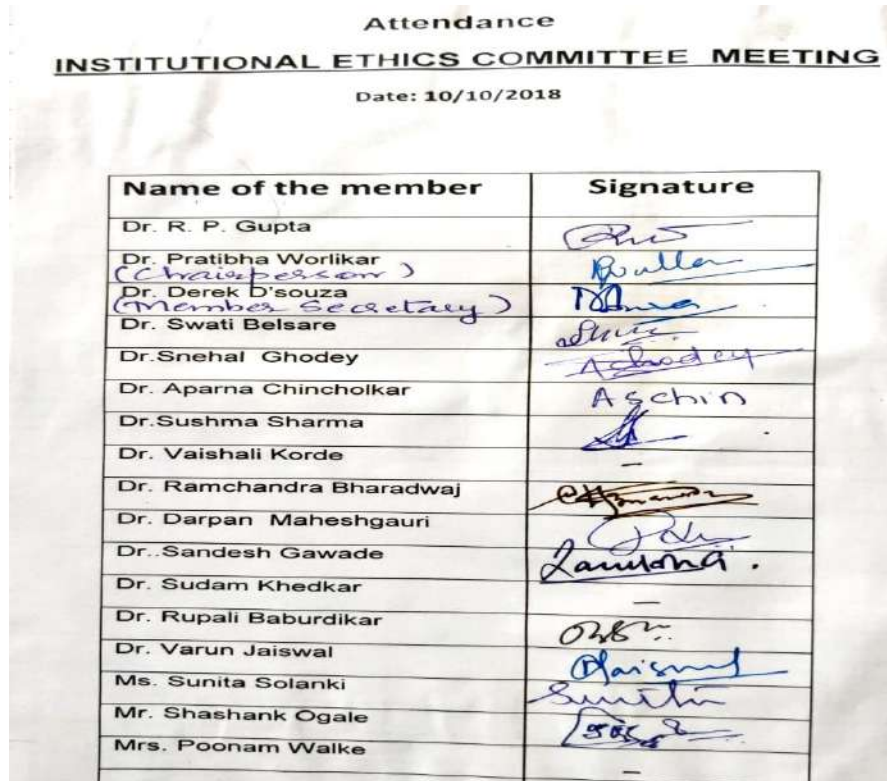 Attendance
INSTITUTIONAL ETHICS COMMITTEE MEETING
Date: 10/10/2018
Name of the member Signature
Dr. R. P. Gupta
Dr. Pratibha Worlikar
(Chairperson)
Dr. Derek D'souza
(Member Secretary)
Dr. Swati Belsare
Dr.Snehal Ghodey
Dr. Aparna Chincholkar Aschin
Dr.Sushma Sharma
Dr. Vaishali Korde —
Dr. Ramchandra Bharadwaj
Dr. Darpan Maheshgauri
Dr..Sandesh Gawade
Dr. Sudam Khedkar —
Dr. Rupali Baburdikar
Dr. Varun Jaiswal
Ms. Sunita Solanki
Mr. Shashank Ogale
Mrs. Poonam Walke —